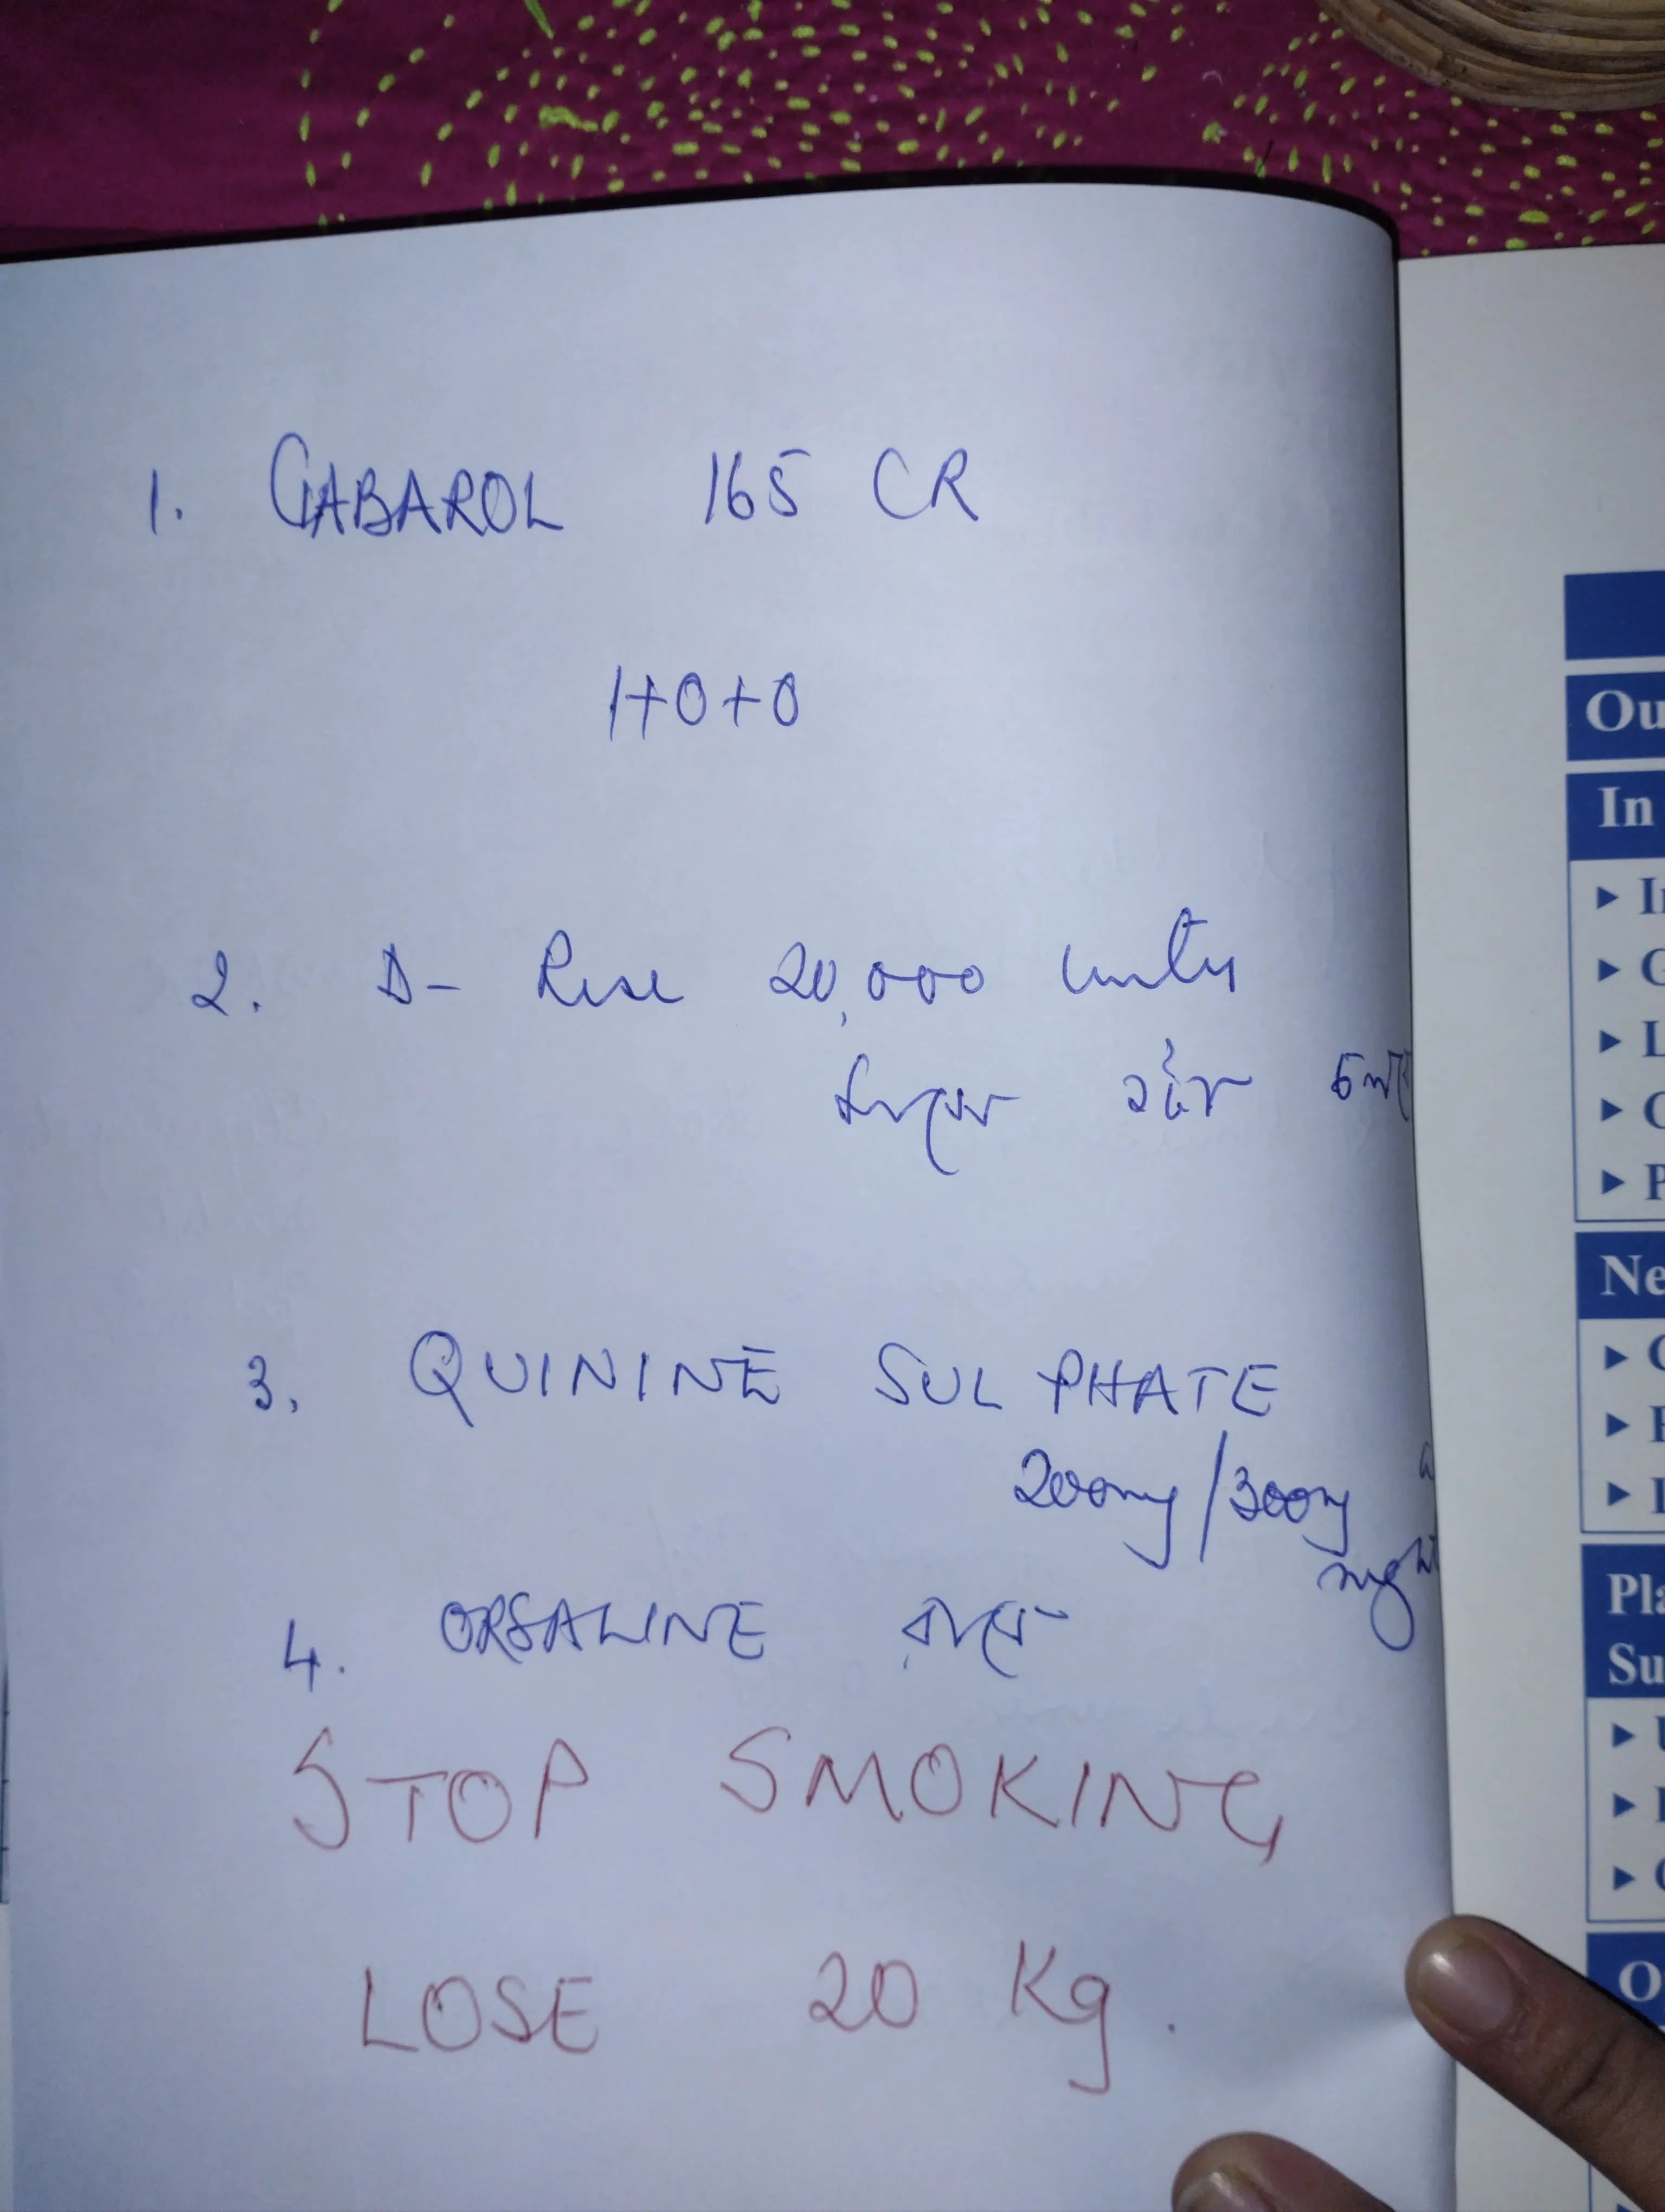 1. GABAROL 165 CR
1+0+0
2. D- Rise 20,000 units
3. QUININE SULPHATE
200mg/300mg
night
4. ORSALINE
STOP SMOKING
LOSE 20 Kg.
Ou
In
Ne
Pla
Su